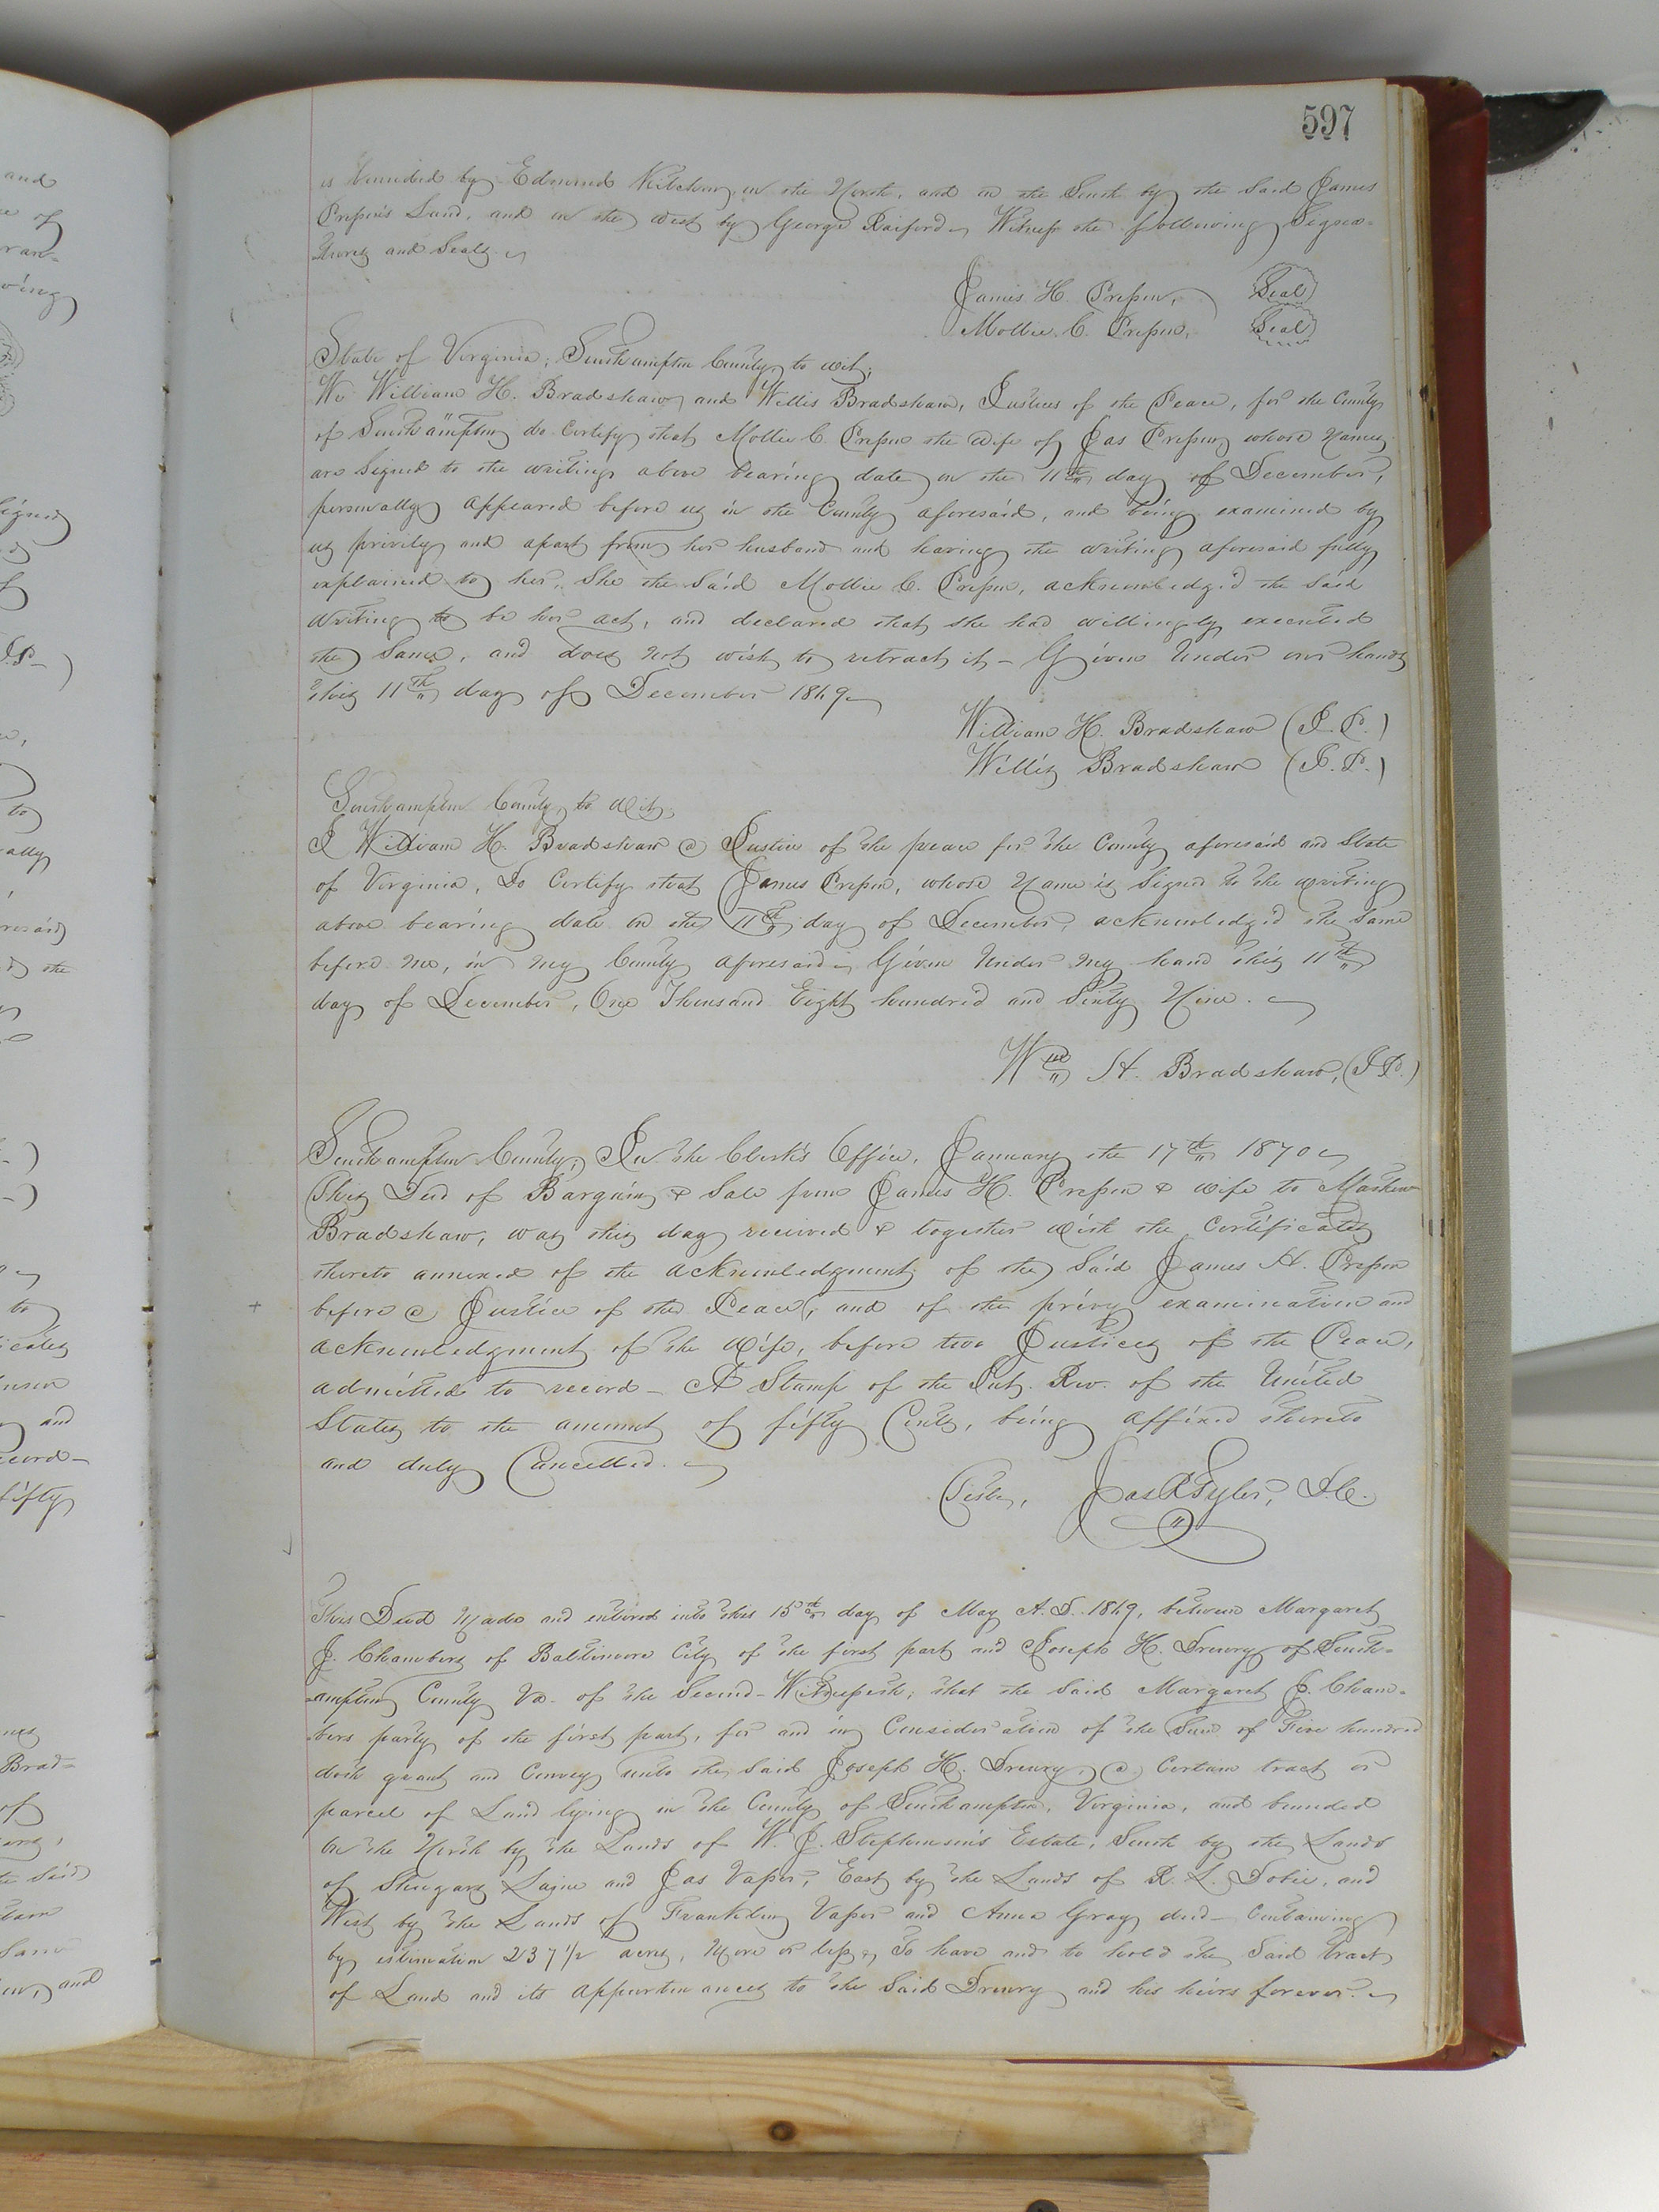 597
is bounded by Edmund Kitchen, on the North, and on the South by the Said James
Presson's Land, and on the west by George Raiford. Witness the following Signa-
tures and Seals.
James H. Presson, (Seal)
Mollie C. Presson, (Seal)
State of Virginia; Southampton County, to wit;
We William H. Bradshaw and Willis Bradshaw, Justices of the Peace, for the County
of Southampton do Certify that Mollie C. Presson the wife of Jas Presson whose Names
are Signed to the writing above bearing date on the 11th day of December,
personally appeared before us in the County aforesaid, and being examined by
us privily and apart from her husband and having the writing aforesaid fully
explained to her, She the Said Mollie C. Presson, acknowledged the Said
writing to be her act, and declared that she had willingly executed
the Same, and does not wish to retract it - Given Under our hands
this 11th day of December 1869
William H. Bradshaw (J. P.)
Willis Bradshaw (J. P.)
Southampton County, to wit;
I William H. Bradshaw a Justice of the peace for the County aforesaid and State
of Virginia, Do Certify that James Presson, whose Name is Signed to the writing
above bearing date on the 11th day of December acknowledged the Same
before me, in my County aforesaid. Given Under my hand this 11th
day of December, One Thousand Eight hundred and Sixty Nine.
Wm H. Bradshaw, (J P.)
Southampton County; In the Clerk's Office, January the 17th 1870
This Deed of Bargain & Sale from James H. Presson & wife to Mathew
Bradshaw, was this day received & together with the Certificates
thereto annexed of the acknowledgment of the Said James H. Presson
before a Justice of the Peace, and of the privy examination and
acknowledgment of the wife, before two Justices of the Peace,
admitted to record - A Stamp of the Int. Rev. of the United
States to the amount of fifty Cents, being affixed thereto
and duly Cancelled.
Teste, Jas R Tyler, D.C.
This Deed Made and entered into this 15th day of May A. D. 1869, between Margaret
J. Chambers of Baltimore City of the first part and Joseph H. Drewry of South-
ampton County Va. of the Second - Witnesseth; that the Said Margaret J. Cham-
bers party of the first part, for and in Consideration of the Sum of Five hundred
doth grant and Convey unto the Said Joseph H. Drewry, a Certain tract or
parcel of Land lying in the County of Southampton, Virginia, and bounded
on the North by the Lands of W. J. Stephenson's Estate, South by the Lands
of Laine and Jas Vaser, East by the Lands of R. L. Dobie, and
West by the Lands of Franklin Vaser and Anna Gray decd - Containing
by estimation 237 1/2 acres, More or less, To have and to hold the Said tract
of Land and its appurtenances to the Said Drewry and his heirs forever.